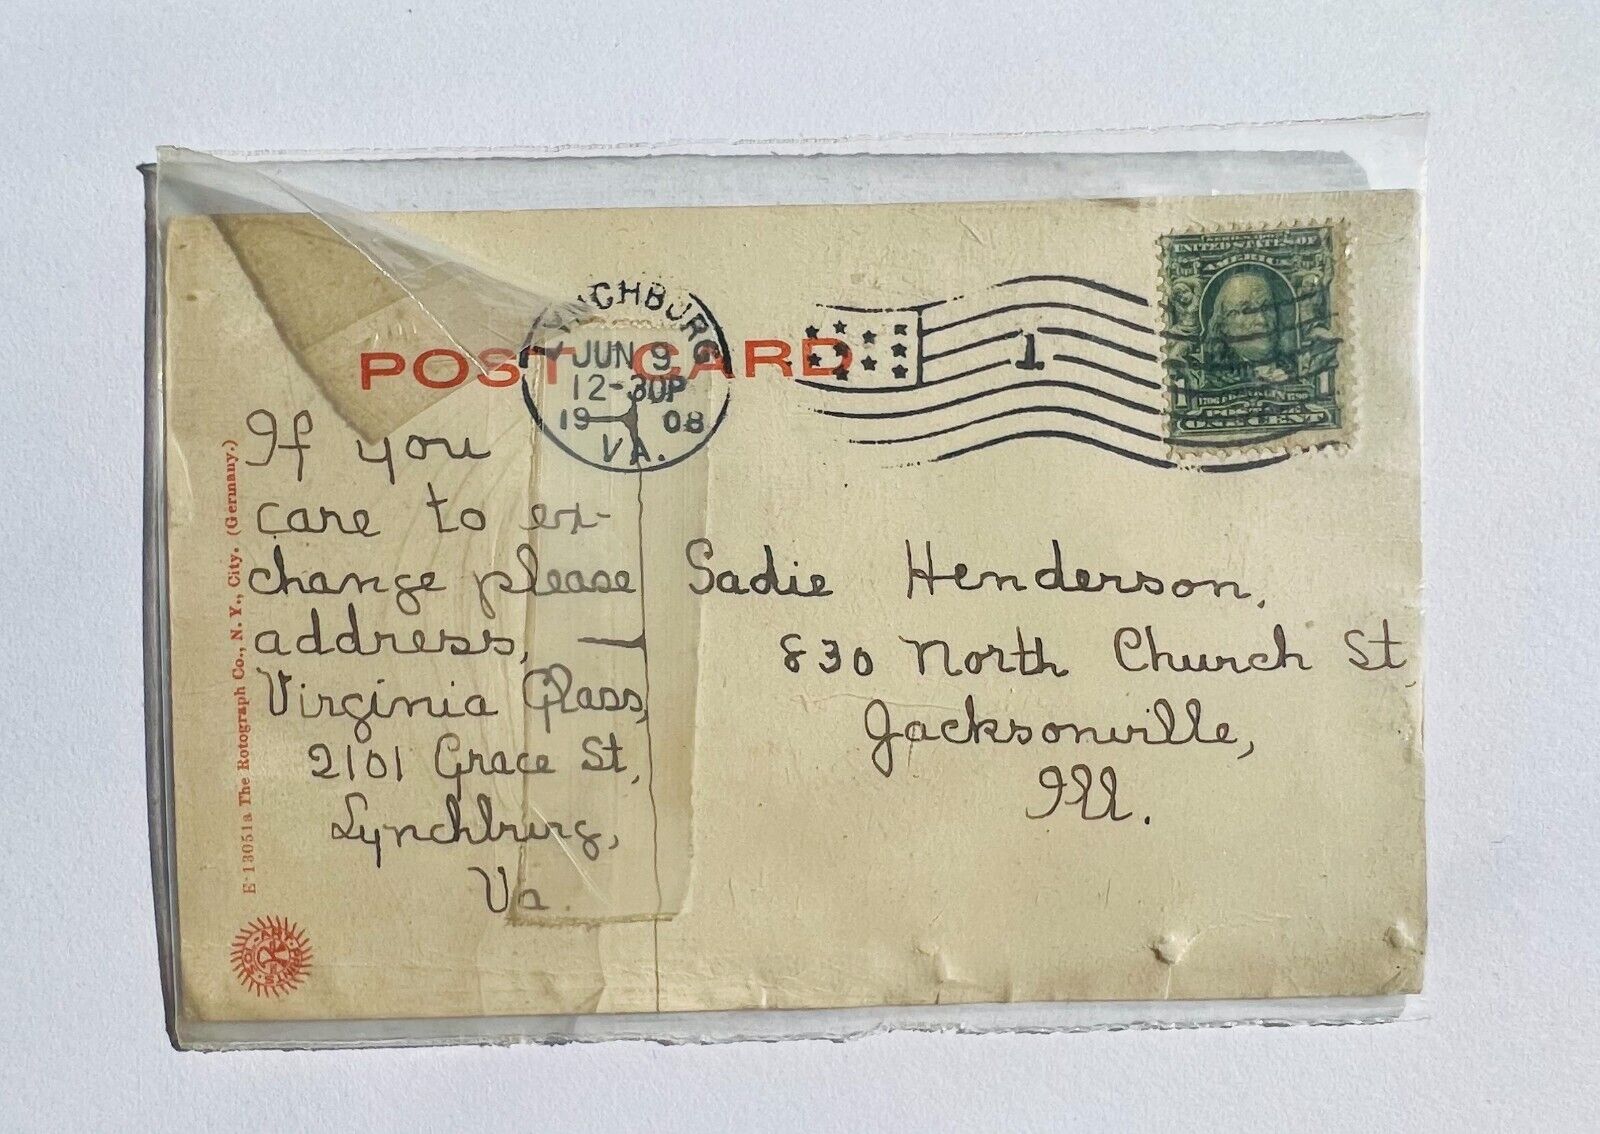 POST CARD
LYNCHBURG
JUN 9
12-30P
19 08
VA.
1
UNITED STATES OF
AMERICA
1 1
POSTAGE
ONE CENT
If you
care to ex-
change please
address, —
Virginia Glass,
2101 Grace St,
Lynchburg,
Va.
Sadie Henderson,
830 North Church St,
Jacksonville,
Ill.
E-13051a The Rotograph Co., N. Y., City. (Germany.)
SOL-ART PRINTS